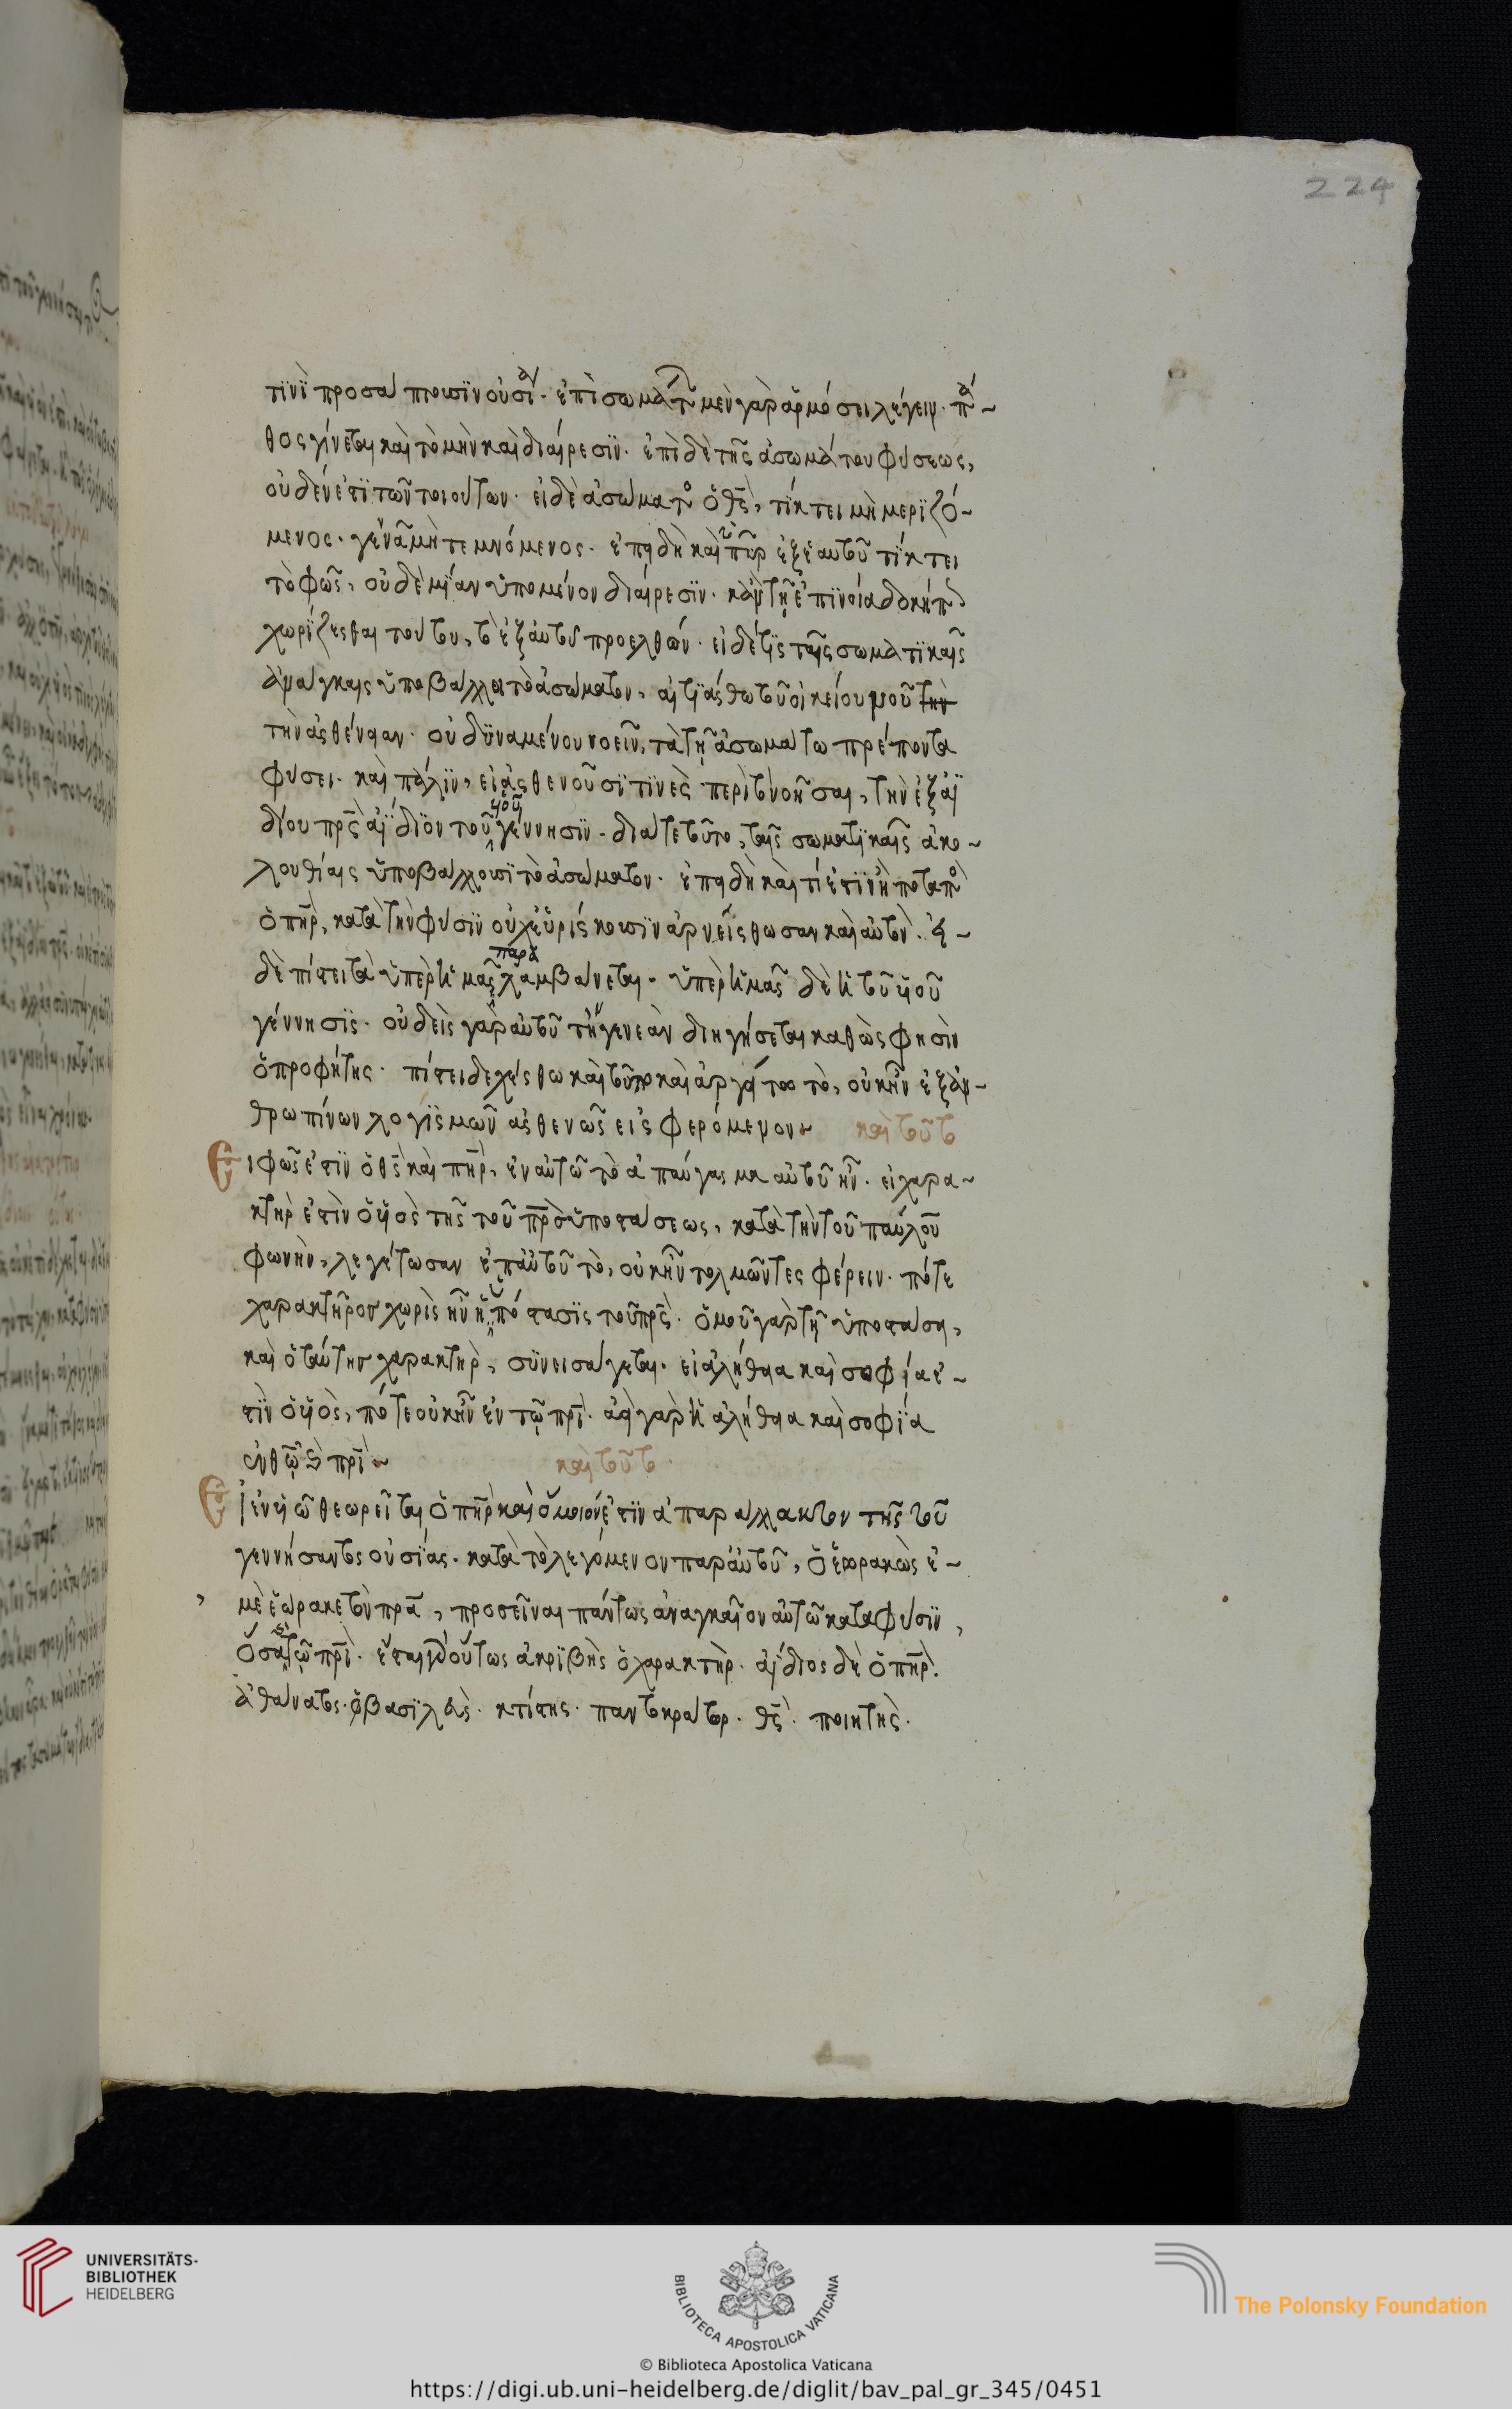 224
τινὶ προσάπτουσιν οὐσία. ἐπὶ σωμάτων μὲν γὰρ ἁρμόσει λέγειν. πά~
θος γίνεται καὶ τομὴν καὶ διαίρεσιν. ἐπὶ δὲ τῆς ἀσωμάτου φύσεως,
οὐδέν ἐστι τῶν τοιούτων. εἰ δὲ ἀσώματος ὁ θς, τίκτει μὴ μεριζό~
μενος. γεννᾶ μὴ τεμνόμενος. ἐπειδὴ καὶ πῦρ ἐξ ἑαυτοῦ τίκτει
τὸ φῶς, οὐδεμίαν ὑπομένον διαίρεσιν. κἂν τῇ ἐπινοία δοκῇ πως
χωρίζεσθαι τούτου, τὸ ἐξ αὐτοῦ προελθών. εἰ δέ τις ταῖς σωματικαῖς
ἀνάγκαις ὑποβάλλει τὸ ἀσώματον, αἰτιάσθω τοῦ οἰκείου νοῦ τὴν
τὴν ἀσθένειαν. οὐ δυναμένου νοεῖν, τὰ τῇ ἀσωμάτω πρέποντα
φύσει. καὶ πάλιν, εἰ ἀσθενοῦσι τινὲς περὶ τὸ νοῆσαι, τὴν ἐξ ἀϊ
δίου πρς ἀΐδιον τοῦ υἱοῦ γέννησιν. διά τε τοῦτο, ταῖς σωματικαῖς ἀκο~
λουθίαις ὑποβάλλουσι τὸ ἀσώματον. ἐπειδὴ καὶ τί ἐστιν ἢ ποταπὸς
ὁ πηρ, κατὰ τὴν φύσιν οὐχ εὑρίσκουσιν ἀρνείσθωσαν καὶ αὐτὸν. εἰ~
δὲ πίστει τὰ ὑπὲρ ἡμᾶς παραλαμβάνεται. ὑπὲρ ἡμᾶς δὲ ἡ τοῦ υἱοῦ
γέννησις. οὐδεὶς γὰρ αὐτοῦ τὴν γενεὰν διηγήσεται καθὼς φησὶν
ὁ προφήτης. πίστει δεχέσθω καὶ τοῦτο καὶ ἀργείτω τὸ, οὐκ ἦν ἐξ ἀν~
θρωπίνων λογισμῶν ἀσθενῶς εἰσφερόμενον~ κατὰ τοῦ αὐτοῦ
Εἰ φῶς ἐστιν ὁ θς καὶ πηρ, ἐν αὐτῶ τὸ ἀπαύγασμα αὐτοῦ ἦν. εἰ χαρα~
κτὴρ ἐστὶν ὁ υἱὸς τῆς τοῦ πρς ὑποστάσεως, κατὰ τὴν τοῦ παύλου
φωνὴν, λεγέτωσαν ἐπ' αὐτοῦ τὸ, οὐκ ἦν τολμῶντες φέρειν. πότε
χαρακτῆρος χωρὶς ἦν ἡ ὑπόστασις τοῦ πρς. ὁμοῦ γὰρ τῇ ὑποστάσει,
καὶ ὁ ταύτης χαρακτὴρ, συνεισάγεται. εἰ ἀλήθεια καὶ σοφία ἐ~
στὶν ὁ υἱὸς, πότε οὐκ ἦν ἐν τῷ πρι. ἀεὶ γὰρ ἡ ἀλήθεια καὶ σοφία
ἐν θῷ καὶ πρι~
Εἰ ἐν υἱῶ θεωρεῖται ὁ πηρ καὶ ὅμοιόν ἐστιν ἀπαράλλακτον τῆς τοῦ
γεννήσαντος οὐσίας. κατὰ τὸ λεγόμενον παρ' αὐτοῦ, ὁ ἑωρακὼς ἐ~
μὲ ἑώρακε τὸν πρα, προσεῖναι πάντως ἀναγκαῖον αὐτῶ κατὰ φύσιν,
ὅσα καὶ τῷ πρι. ἔσται γὰρ οὕτως ἀκριβὴς ὁ χαρακτήρ. ἀίδιος δὲ ὁ πηρ.
ἀθάνατος. ὁ βασιλεὺς. κτίστης. παντοκράτορ. θς. ποιητὴς.
UNIVERSITÄTS-
BIBLIOTHEK
HEIDELBERG
BIBLIOTECA APOSTOLICA VATICANA
The Polonsky Foundation
© Biblioteca Apostolica Vaticana
https://digi.ub.uni-heidelberg.de/diglit/bav_pal_gr_345/0451